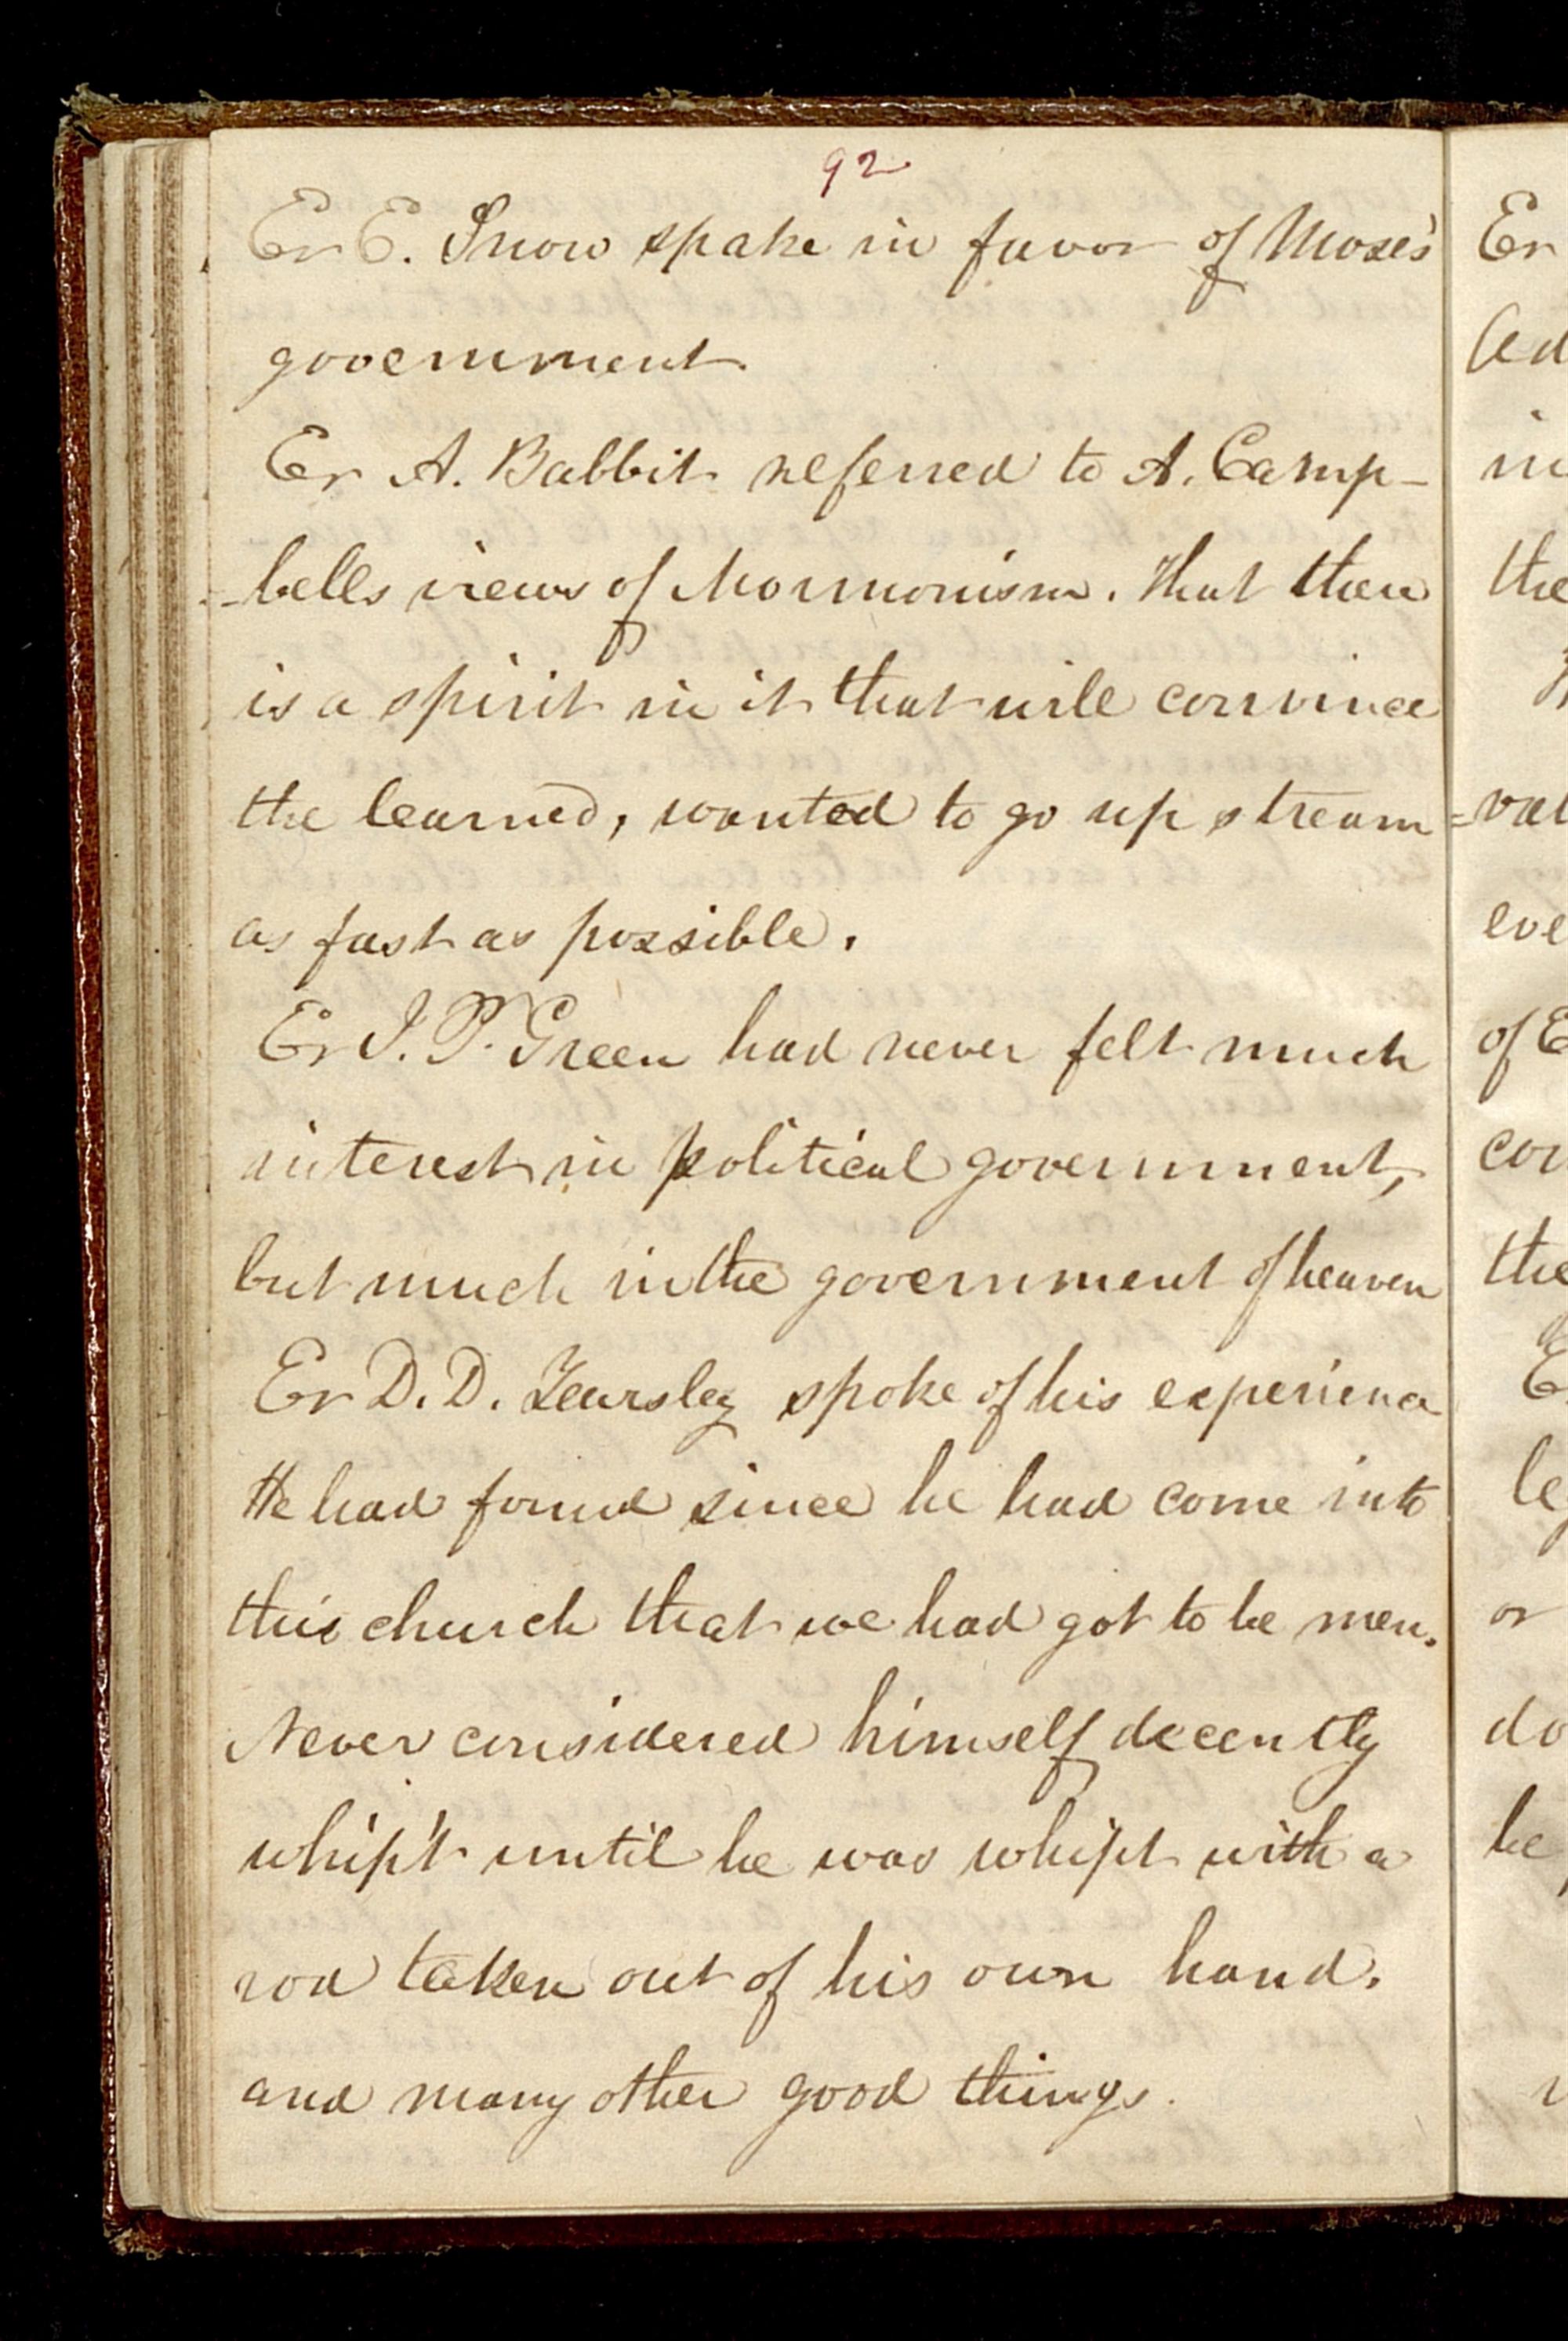 92
Er E. Snow spake in favor of Moses's
government
Er A. Babbit referred to A. Camp-
-bells views of Mormonism. That there
is a spirit in it that will convince
the learned, wanted to go up stream
as fast as possible.
Er J. P. Green had never felt much
interest in political government,
but much in the government of heaven
Er D. D. Yearsley spoke of his experience
He had found since he had come into
this church that we had got to be men.
Never considered himself decently
whip't until he was whip't with a
rod taken out of his own hand.
and many other good things.
Er
Ad
in
the
=val
eve
of E
con
the
E
le
or
do
be